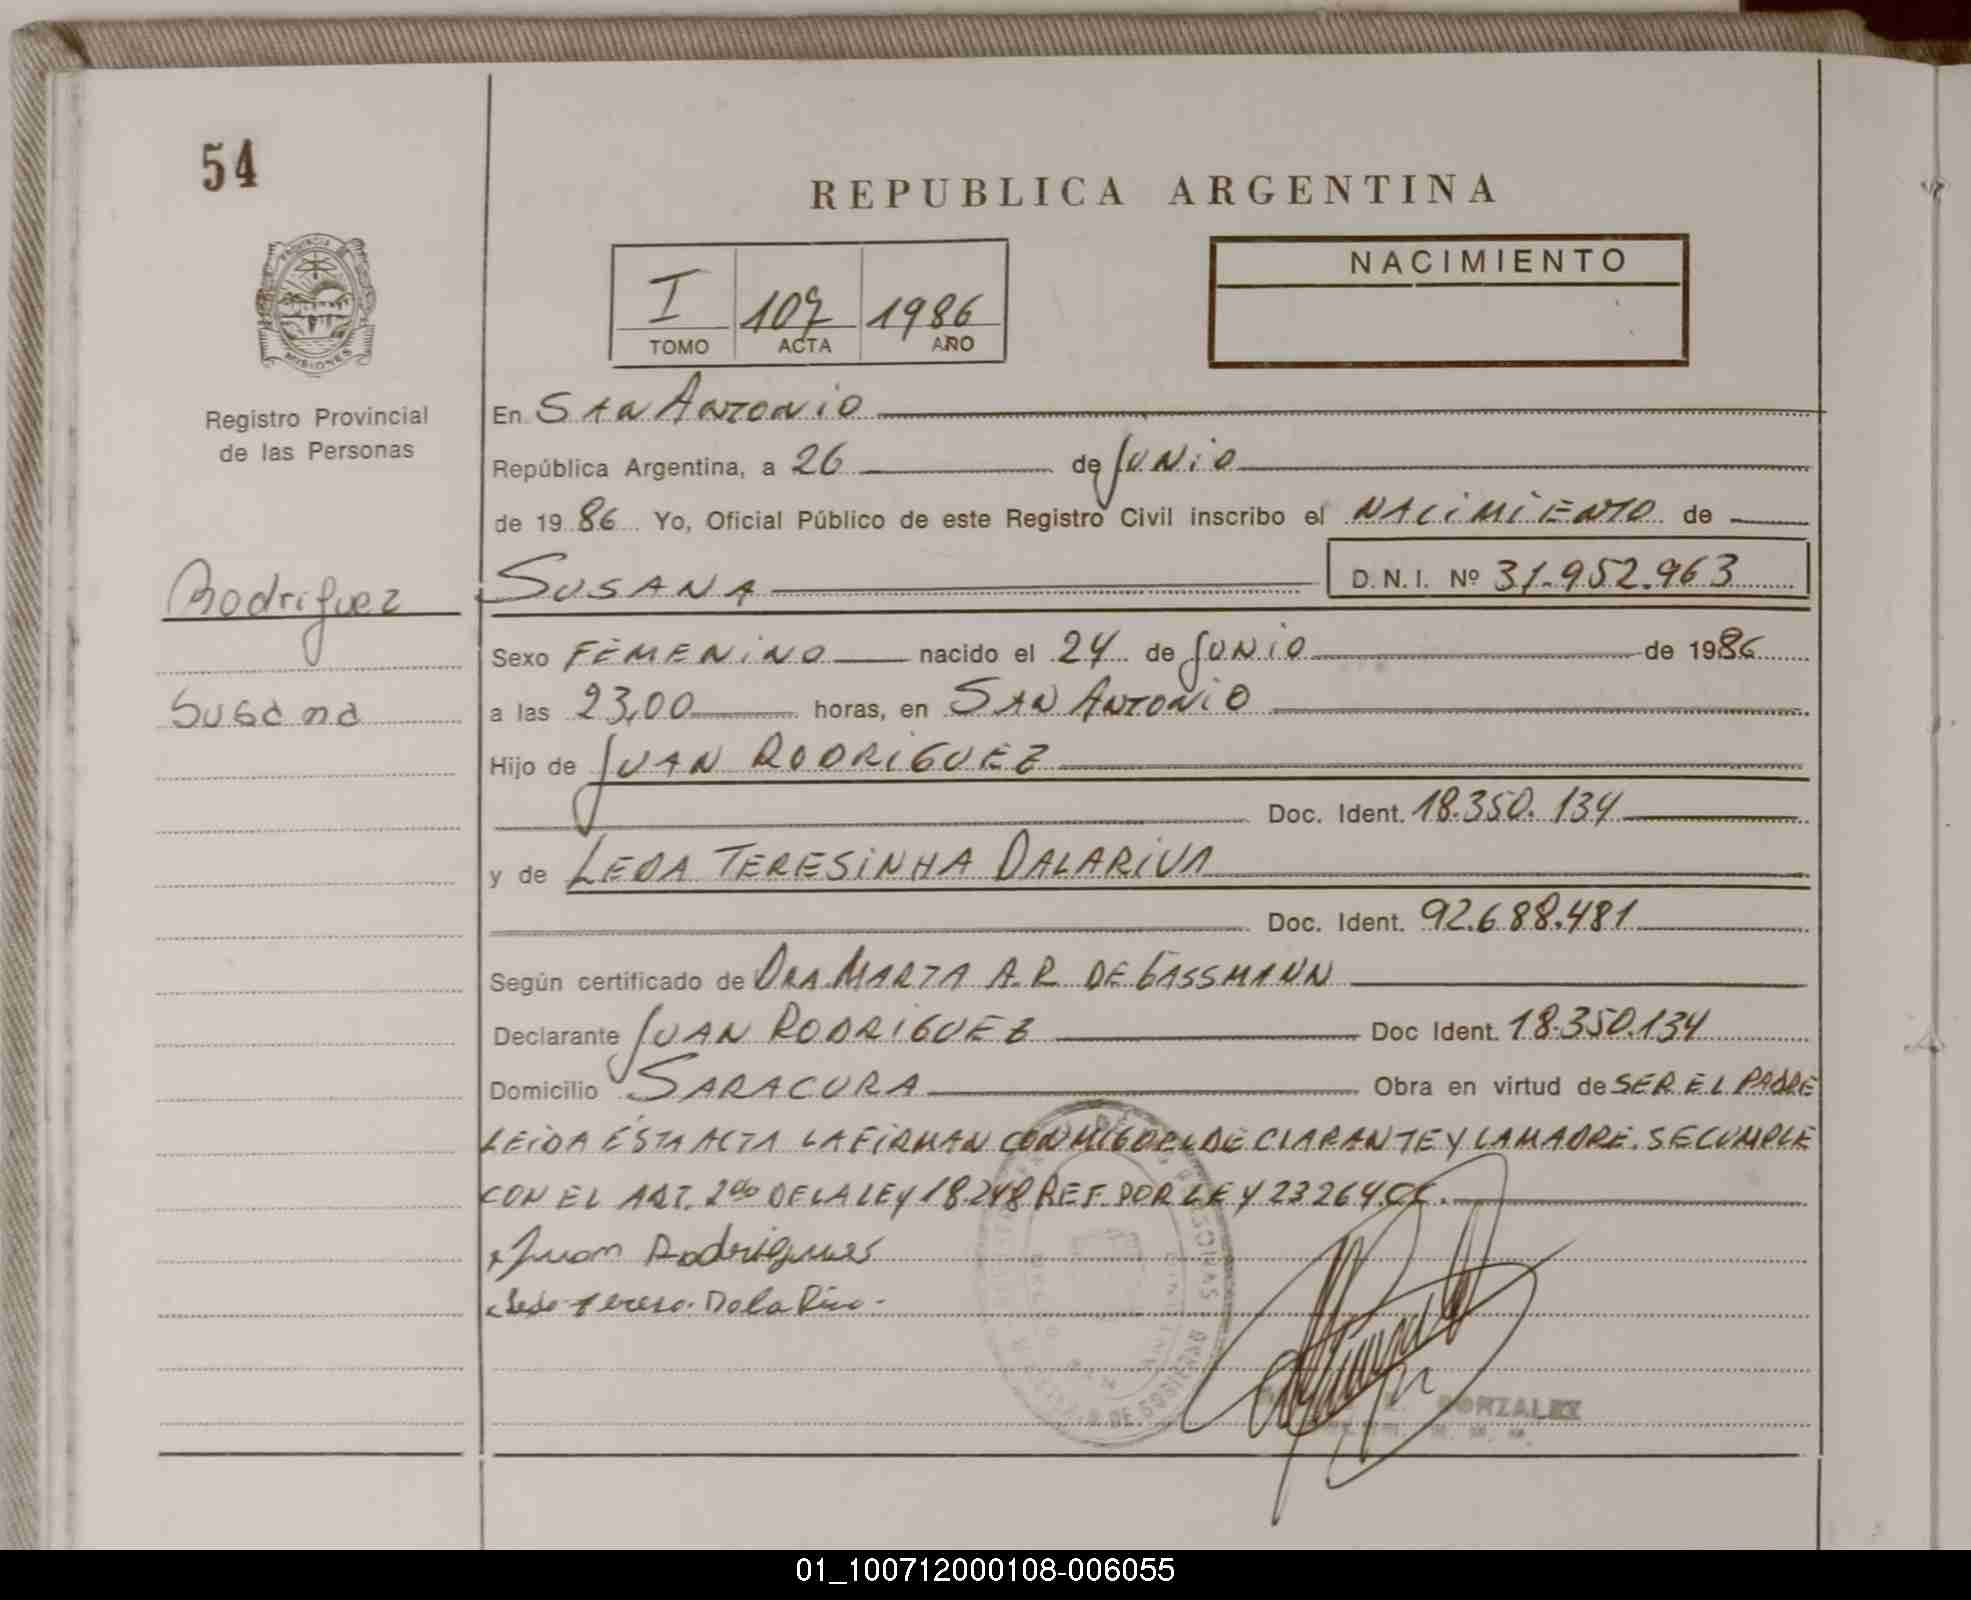 54
REPUBLICA ARGENTINA
PROVINCIA DE
MISIONES
Registro Provincial
de las Personas
I 107 1986
TOMO ACTA AÑO
NACIMIENTO
En SAN ANTONIO
República Argentina, a 26 de JUNIO
de 1986 Yo, Oficial Público de este Registro Civil inscribo el NACIMIENTO de
Rodriguez
SUSANA D.N.I. Nº 31.952.963
Sexo FEMENINO nacido el 24 de JUNIO de 1986
Susana
a las 23,00 horas, en SAN ANTONIO
Hijo de JUAN RODRIGUEZ
Doc. Ident. 18.350.134
y de LEDA TERESINHA DALARIVA
Doc. Ident. 92.688.481
Según certificado de DRA. MARTA A.R. DE GASSMANN
Declarante JUAN RODRIGUEZ Doc Ident. 18.350.134
Domicilio SARACURA Obra en virtud de SER EL PADRE
LEIDA ÉSTA ACTA LA FIRMAN CONMIGO EL DECLARANTE Y LA MADRE. SE CUMPLE
CON EL ART. 2do DE LA LEY 18.248 REF. POR LEY 23264
Juan Rodrigues
GONZALEZ
01_100712000108-006055